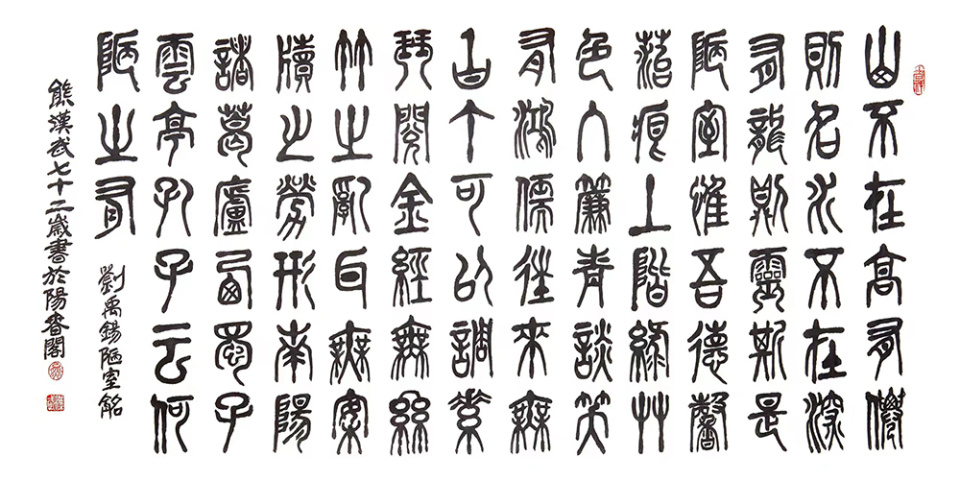 山不在高有僊
則名水不在深
有龍則靈斯是
陋室惟吾德馨
苔痕上階綠艸
色入簾青談笑
有鴻儒往來無
白丁可以調素
琴閱金經無絲
竹之亂耳無案
牘之勞形南陽
諸葛廬西蜀子
雲亭孔子云何
陋之有
劉禹錫陋室銘
熊漢武七十二歲書於陽春閣